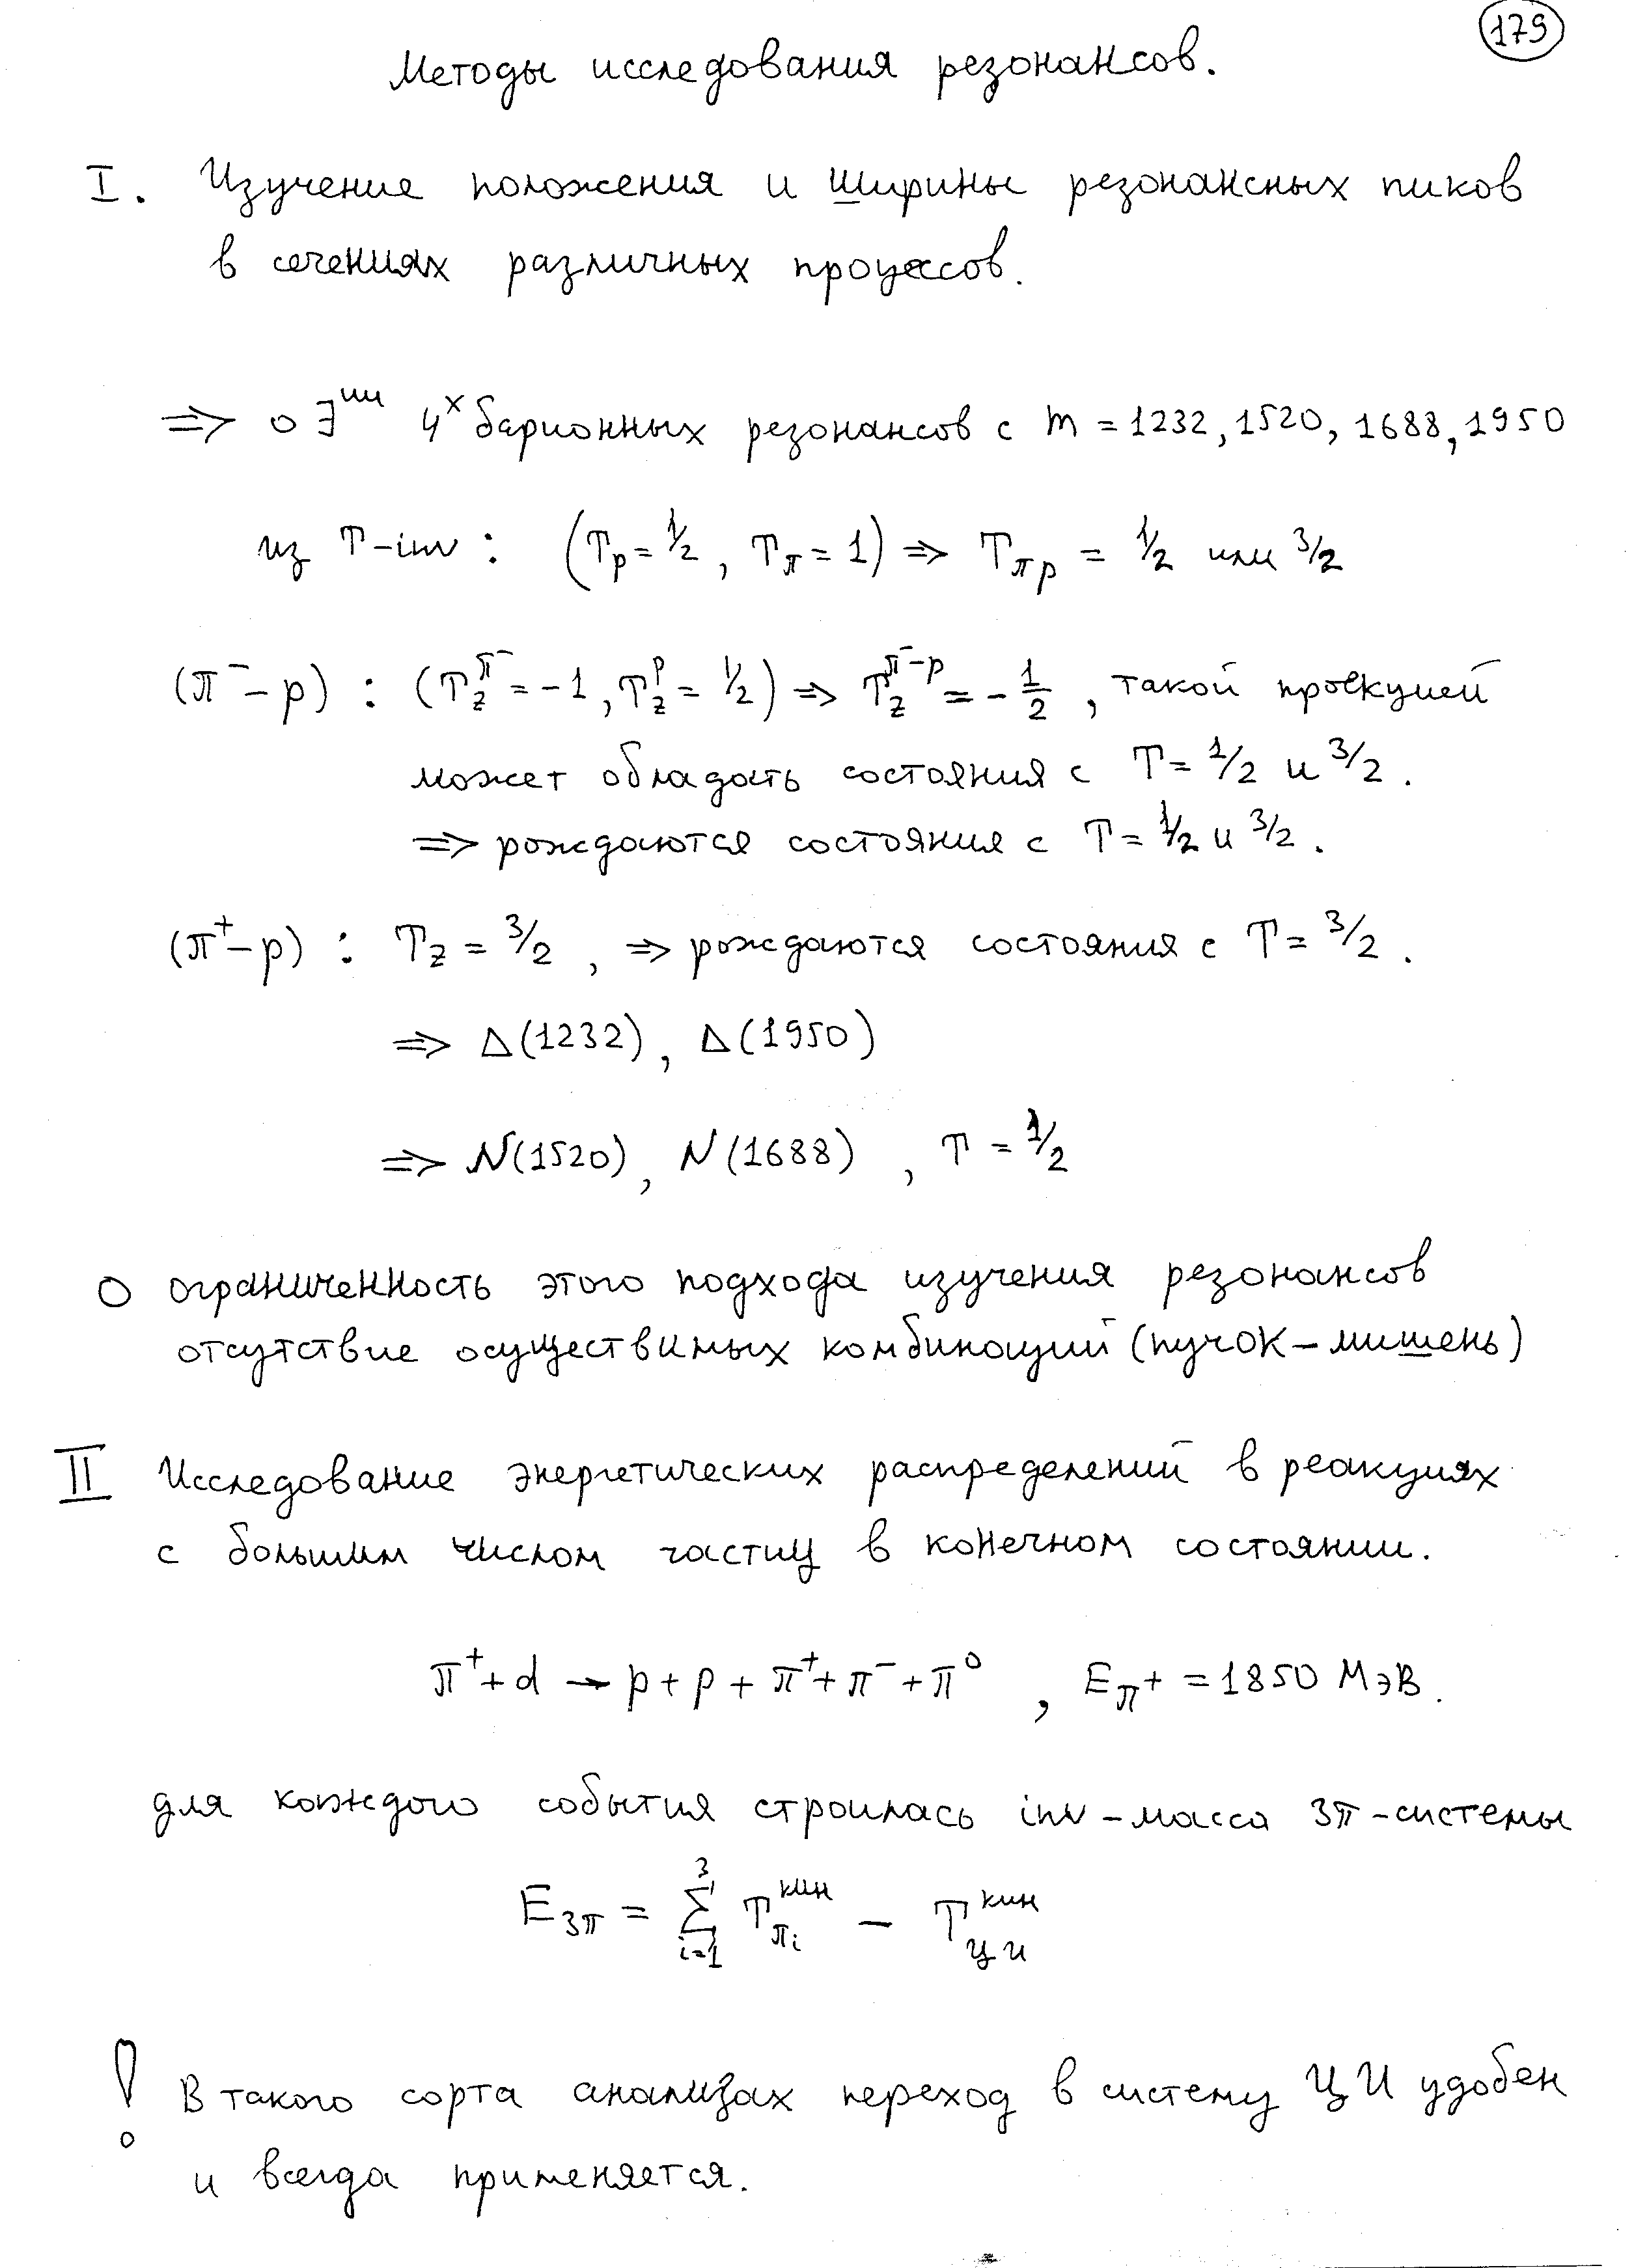 179
Методы исследования резонансов.
I. Изучение положения и ширины резонансных пиков
в сечениях различных процессов.
⇒ о ∃ᶦᶦᶦ 4ˣ барионных резонансов с m = 1232, 1520, 1688, 1950
из T-inv : (T_p = 1/2, T_π = 1) ⇒ T_πp = 1/2 или 3/2
(π⁻-p) : (T_z^π⁻ = -1, T_z^p = 1/2) ⇒ T_z^π⁻-p = -1/2, такой проекцией
может обладать состояния с T = 1/2 и 3/2.
⇒ рождаются состояния с T = 1/2 и 3/2.
(π⁺-p) : T_z = 3/2, ⇒ рождаются состояния с T = 3/2.
⇒ Δ(1232), Δ(1950)
⇒ N(1520), N(1688), T = 1/2
○ ограниченность этого подхода изучения резонансов
отсутствие осуществимых комбинаций (пучок-мишень)
II Исследование энергетических распределений в реакциях
с большим числом частиц в конечном состоянии.
π⁺ + d → p + p + π⁺ + π⁻ + π⁰, E_π⁺ = 1850 МэВ.
для каждого события строилась inv-масса 3π-системы
E_3π = Σ_{i=1}^{3} T_πi^кин - T_ци^кин
! В такого сорта анализах переход в систему ЦИ удобен
и всегда применяется.